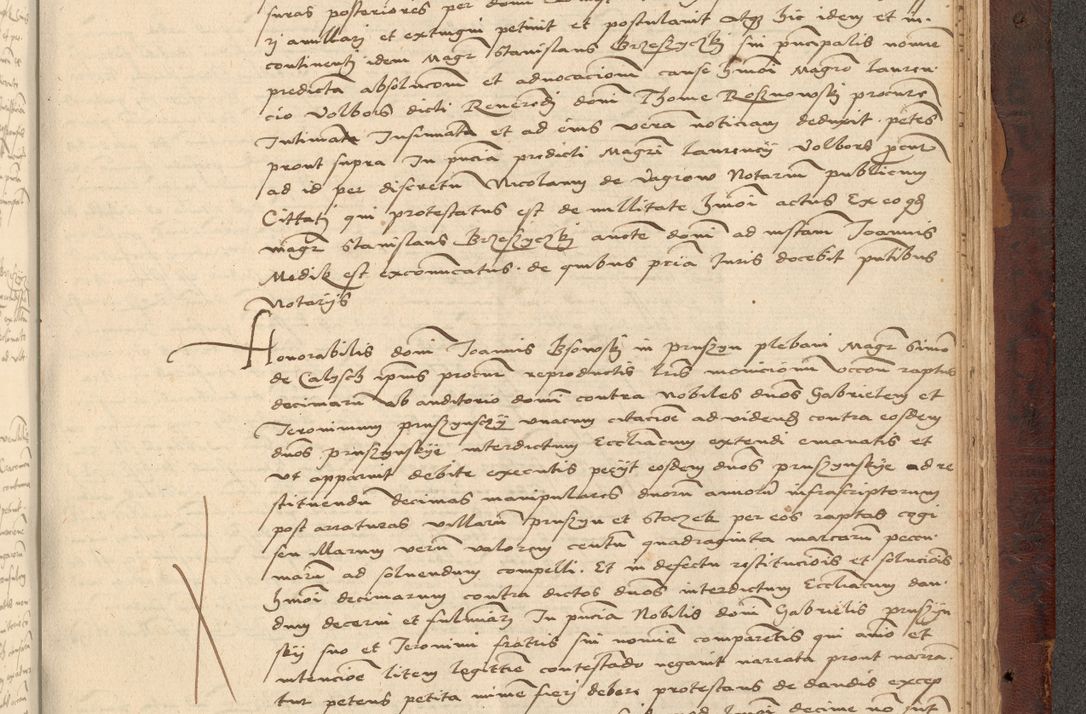 suras posteriores per
ri anullari et extingui petivit et postulavit Atqz hic idem et in
continenti idem Magr Stanislaus Brzeszyczkj sui principalis nomine
predicta absolucom et advocaciom cause hmoi Magro Lauren
cio Volbors dicti Reverendj domi Thome Reschowskj procure
Intimata Insinuata et ad eius vera noticiam deduxit petens
prout supra In pncia predicti Magri Laurencij Volbors pcur
ad id per discretum Nicolaum de Wagrow Notarium publicum
Cittatj qui protestatus est de nullitate hmoi actus Ex eo qd
magr Stanislaus Brzeszyczkj aucte domi ad instam Joannis
Medik est excomicatus de quibus pncia Juris docebit pntibus
Notarijs
Honorabilis domi Joannis Bsowskj in pruszyn plebani Magr Simo
de Calysch ipius procur reproductis lris monicioum occom raptus
decimarum Ab auditorio domi contra Nobiles duos Gabrielem et
Jeronimum pruszynsczy unacum citacioe ad videndum contra eosdem
duos pruszynskye interdictum Eccliacum extendi emanatis et
ut apparuit debite executis pecijt eosdem duos pruszynskye ad re
stituendum decimas manipulares duorum annorum infrascriptorum
post arraturas villarum pruszyn et Stoczek per eos raptas cogi
seu Illarum verum valorem centum quadraginta marcarum pecu
niarum ad solvendum compelli. Et in defectu restitucionis et solucionis
hmoi decimarum contra dictos duos interdictum Eccliacum dan
dum decerni et fulminari In pncia Nobilis domi Gabrielis pruszyn
skij suo et Jeronimi fratris sui nomine comparentis qui animo et
intencioe litem legittime contestando negavit narrata prout narra
tur petens petita minime fierj debere protestans de dandis excep